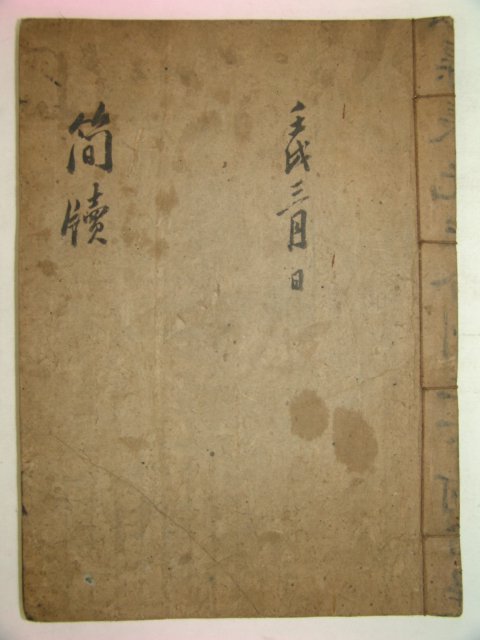 壬戌三月 日
簡牘